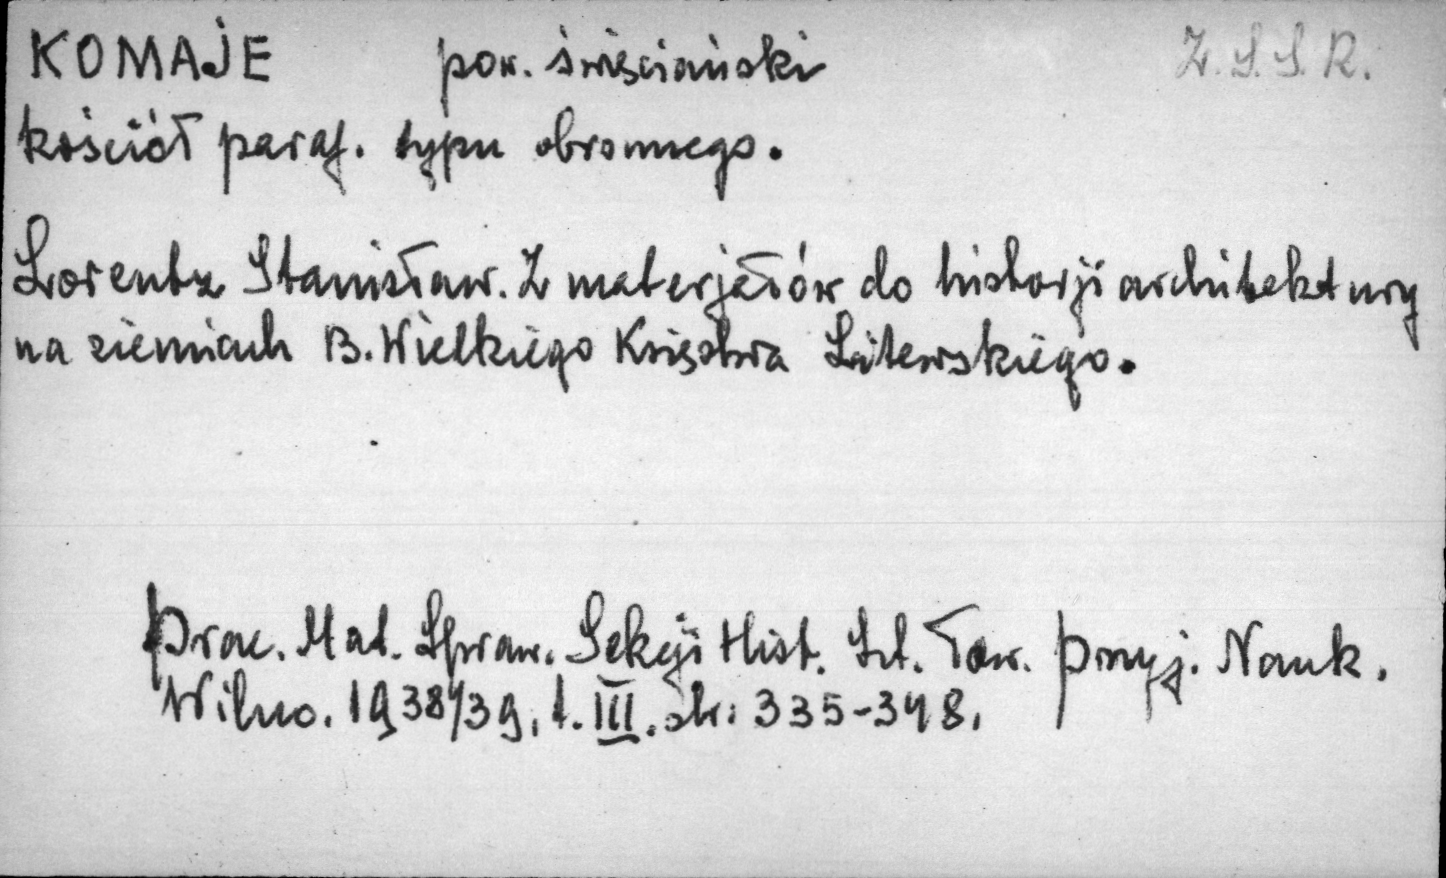 KOMAJE pow. święciański Z.S.S.R.
kościół paraf. typu obronnego.
Lorentz Stanisław. Z materjałów do historji architektury
na ziemiach B. Wielkiego Księstwa Litewskiego.
Prac. Mat. Spraw. Sekcji Hist. Szt. Tow. Przyj. Nauk.
Wilno. 1938/39, t. III. str: 335-348.